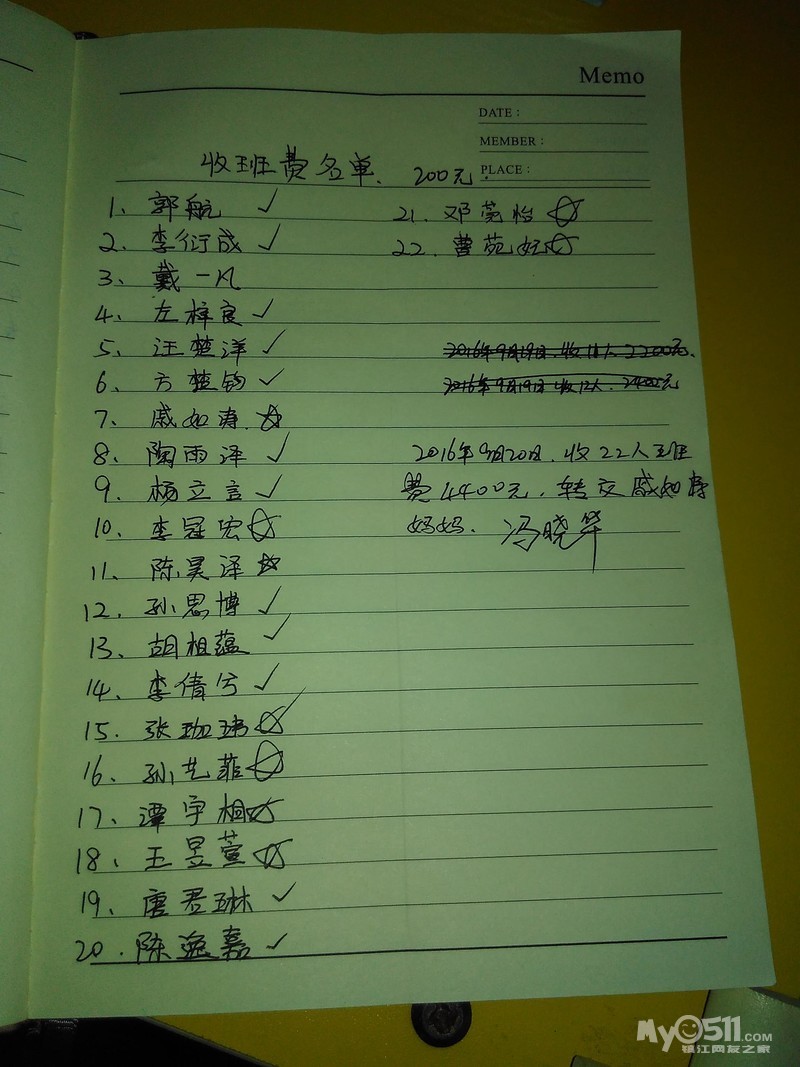 Memo
DATE:
MEMBER:
PLACE:
收班费名单. 200元.
1、郭航 ✓
2、李衍成 ✓
3、戴一凡
4、左梓良 ✓
5、汪楚洋 ✓
6、方楚钧 ✓
7、戚如涛 ☆
8、陶雨泽 ✓
9、杨立言 ✓
10、李冠宏 ☆
11、陈昊泽 ☆
12、孙思博 ✓
13、胡相蕴 ✓
14、李倩兮 ✓
15. 张珈玮 ☆✓
16、孙艺菲 ☆
17、潭宇相 ☆
18、王昱萱 ☆
19、唐君琳 ✓
20. 陈逸嘉 ✓
21. 邓莞怡 ☆
22. 曹苑妘 ☆
2016年9月19日. 收11人 2200元.
2016年9月19日 收12人. 2400元
2016年9月20日. 收22人班
费4400元. 转交戚如涛
妈妈. 冯晓华
My0511.COM
镇江网友之家